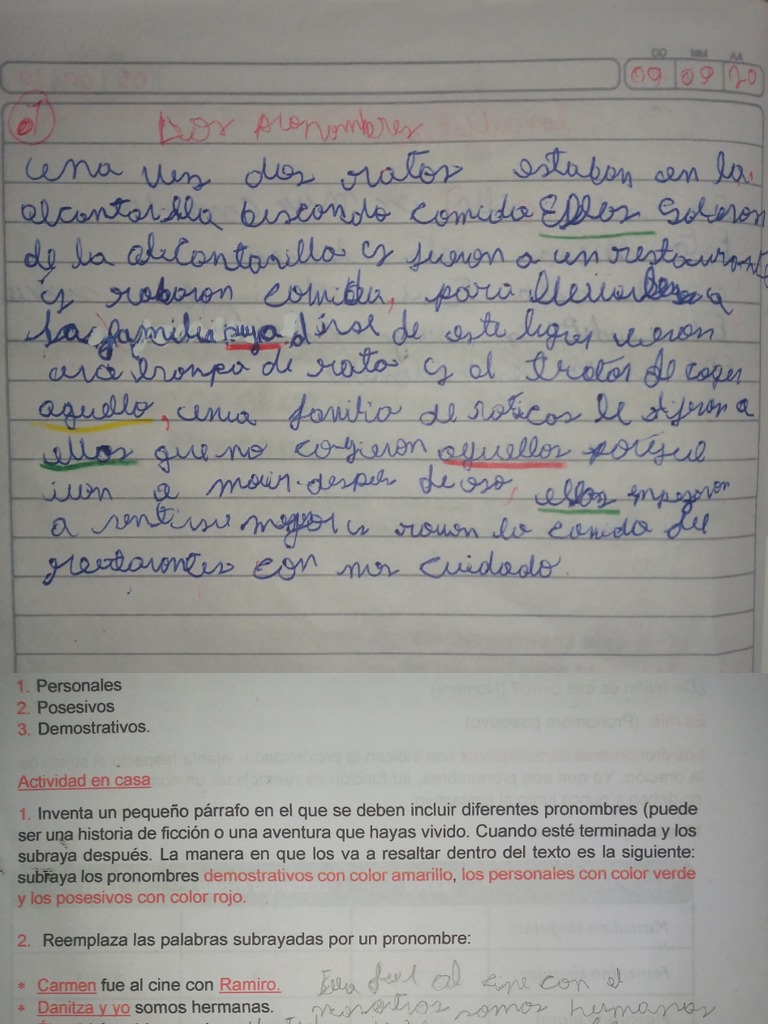 DD MM AA
09 09 20
1 Los pronombres
una ves dos ratos estaban en la
alcantarilla buscando comida Ellos salieron
de la alcantarilla y fueron a un restaurante
y robaron comida, para llevarles a
la familia suya de este lugar vieron
una trampa de rata y al tratar de coger
aquello, una familia de raticos le dijeron a
ellos que no cogieron aquellos porque
ivan a morir. despues de eso, ellos empesaron
a sentirse mejor y rovan la comida del
con mas cuidado.
1. Personales
2. Posesivos
3. Demostrativos.
Actividad en casa
1. Inventa un pequeño párrafo en el que se deben incluir diferentes pronombres (puede
ser una historia de ficción o una aventura que hayas vivido. Cuando esté terminada y los
subraya después. La manera en que los va a resaltar dentro del texto es la siguiente:
subraya los pronombres demostrativos con color amarillo, los personales con color verde
y los posesivos con color rojo.
2. Reemplaza las palabras subrayadas por un pronombre:
* Carmen fue al cine con Ramiro. Ella fue al cine con el
* Danitza y yo somos hermanas. nosotros somos hermanas